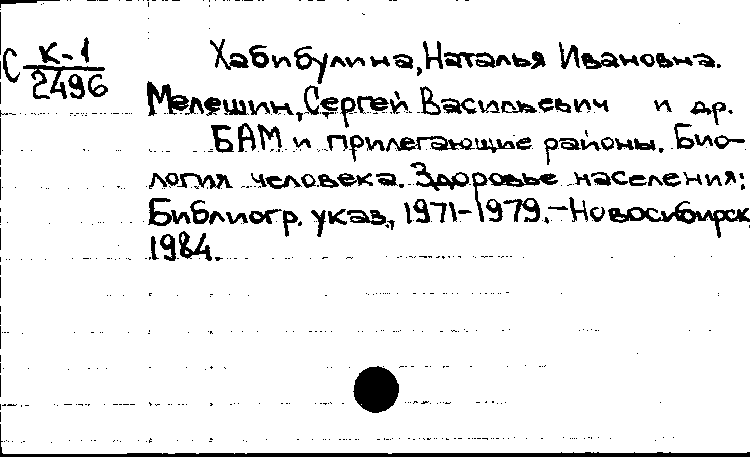 С К-1
2496
Хабибулина, Наталья Ивановна.
Мелешин, Сергей Васильевич и др.
БАМ и прилегающие районы. Био-
логия человека. Здоровье населения:
Библиогр. указ., 1971-1979.-Новосибирск,
1984.